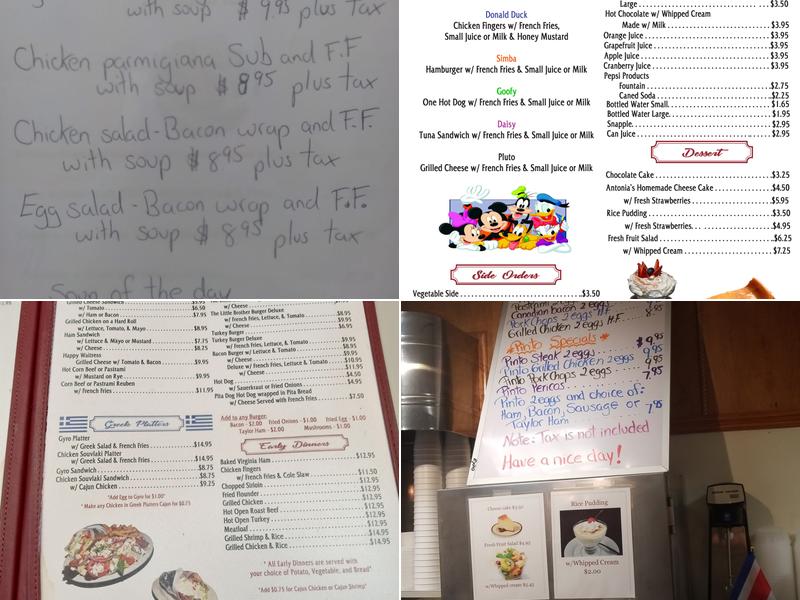 with soup $ 9.95 plus tax
Chicken parmigiana Sub and F.F
with soup $ 8.95 plus tax
Chicken salad-Bacon wrap and F.F.
with soup $ 8.95 plus tax
Egg salad-Bacon wrap and F.F.
with soup $ 8.95 plus tax
Soup of the day
Donald Duck
Chicken Fingers w/ French Fries,
Small Juice or Milk & Honey Mustard
Simba
Hamburger w/ French Fries & Small Juice or Milk
Goofy
One Hot Dog w/ French Fries & Small Juice or Milk
Daisy
Tuna Sandwich w/ French Fries & Small Juice or Milk
Pluto
Grilled Cheese w/ French Fries & Small Juice or Milk
Side Orders
Vegetable Side $3.50
Large $3.50
Hot Chocolate w/ Whipped Cream
Made w/ Milk $3.95
Orange Juice $3.95
Grapefruit Juice $3.95
Apple Juice $3.95
Cranberry Juice $3.95
Pepsi Products
Fountain $2.75
Caned Soda $2.25
Bottled Water Small $1.65
Bottled Water Large $1.95
Snapple $2.95
Can Juice $2.95
Dessert
Chocolate Cake $3.25
Antonia's Homemade Cheese Cake $4.50
w/ Fresh Strawberries $5.95
Rice Pudding $3.50
w/ Fresh Strawberries $4.95
Fresh Fruit Salad $6.25
w/ Whipped Cream $7.25
Grilled Cheese Sandwich $5.95
w/ Tomato $6.50
w/ Ham or Bacon $7.95
Grilled Chicken on a Hard Roll
w/ Lettuce, Tomato, & Mayo $8.95
Ham Sandwich
w/ Lettuce & Mayo or Mustard $7.75
w/ Cheese $8.25
Happy Waitress
Grilled Cheese w/ Tomato & Bacon $9.95
Hot Corn Beef or Pastrami
w/ Mustard on Rye $9.95
Corn Beef or Pastrami Reuben
w/ French Fries $11.95
Greek Platters
Gyro Platter
w/ Greek Salad & French Fries $14.95
Chicken Souvlaki Platter
w/ Greek Salad & French Fries $14.95
Gyro Sandwich $8.75
Chicken Souvlaki Sandwich $8.75
w/ Cajun Chicken $9.25
*Add Egg to Gyro for $1.00*
* Make any Chicken in Greek Platters Cajun for $0.75
w/ Cheese
The Little Brother Burger Deluxe
w/ French Fries, Lettuce, & Tomato $8.95
w/ Cheese $9.95
Turkey Burger $6.95
Turkey Burger Deluxe
w/ French Fries, Lettuce, & Tomato
w/ Cheese
Bacon Burger w/ Lettuce & Tomato
w/ Cheese
Deluxe w/ French Fries, Lettuce & Tomato
w/ Cheese $11.95
Hot Dog $4.50
w/ Sauerkraut or Fried Onions $4.95
Pita Dog Hot Dog wrapped in Pita Bread
w/ Cheese Served with French Fries $7.50
Add to any Burger:
Bacon - $2.00 Fried Onions - $1.00 Fried Egg - $1.00
Taylor Ham - $2.00 Mushrooms - $1.00
Early Dinners
Baked Virginia Ham $12.95
Chicken Fingers
w/ French Fries & Cole Slaw $11.50
Chopped Sirloin $12.95
Fried Flounder $12.95
Grilled Chicken $12.95
Hot Open Roast Beef $12.95
Hot Open Turkey $12.95
Meatloaf $12.95
Grilled Shrimp & Rice $14.95
Grilled Chicken & Rice $14.95
* All Early Dinners are served with
your choice of Potato, Vegetable, and Bread*
*Add $0.75 for Cajun Chicken or Cajun Shrimp*
Canadian bacon
Pork Chops 2 eggs H.F.
Grilled Chicken 2 eggs H.F. 8.95
*Pinto Specials*
Pinto Steak 2 eggs $9.95
Pinto Grilled Chicken 2 eggs 9.95
Pinto Pork Chops 2 eggs 9.95
Pinto Pericos 7.95
Pinto 2 eggs and choice of:
Ham, Bacon, Sausage or 7.95
Taylor Ham
Note: Tax is not included
Have a nice day!
Cheese cake $3.50
Fresh Fruit Salad $4.95
w/Whipped cream $5.45
Rice Pudding
w/Whipped Cream
$2.00